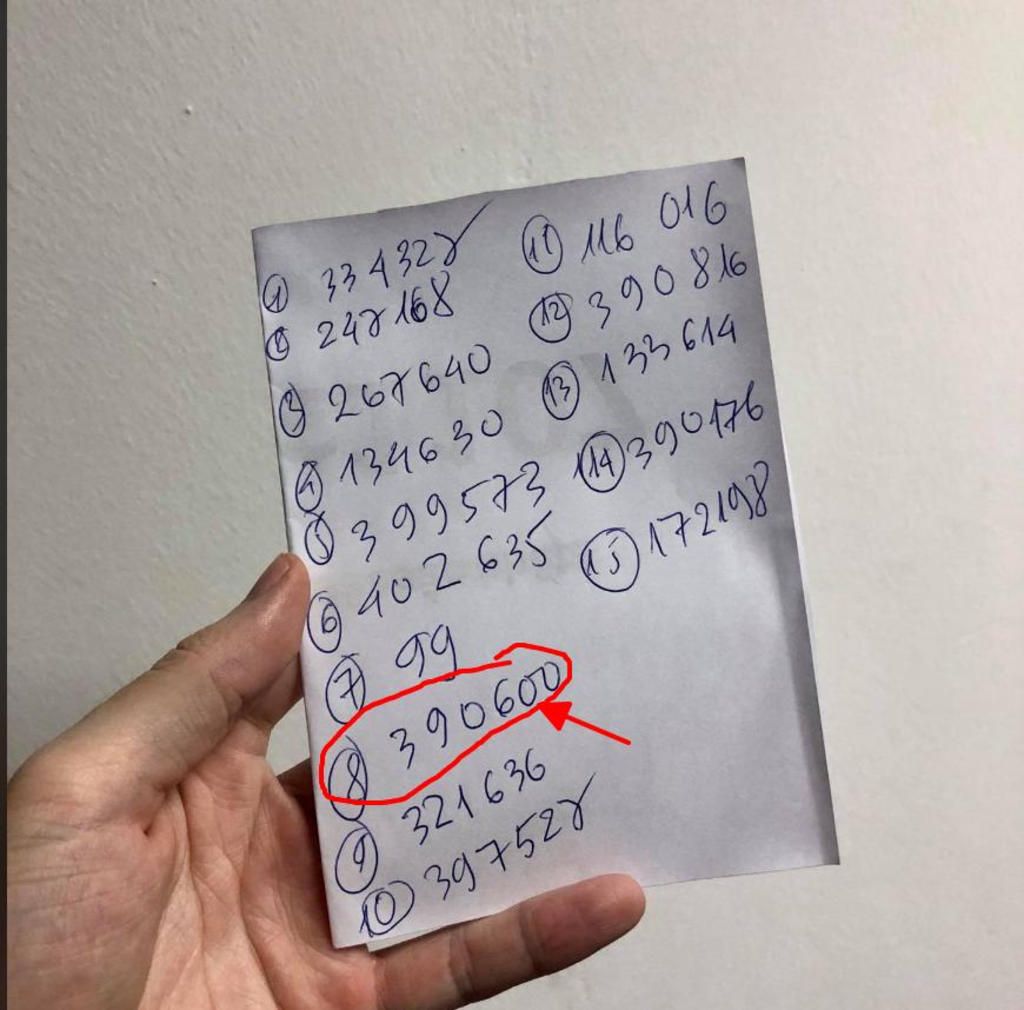 ① 334328
② 247168
③ 267640
④ 134630
⑤ 399573
⑥ 402635
⑦ 99
⑧ 390600
⑨ 321636
⑩ 397528
⑪ 116 016
⑫ 390816
⑬ 133614
⑭ 390176
⑮ 172198